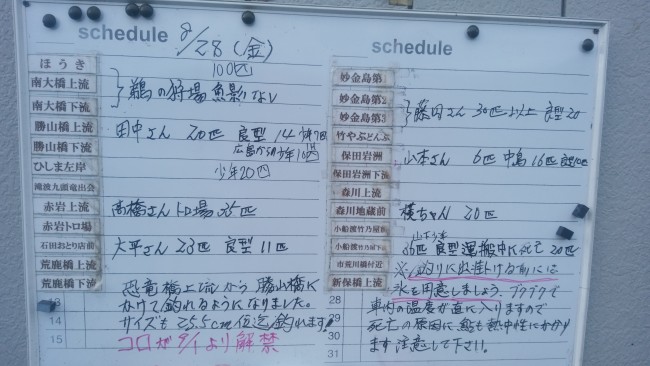 schedule 8/28(金)
100匹
ほうき
南大橋上流
南大橋下流
鵜の狩場 魚影なし
勝山橋上流 田中さん 20匹 良型14
勝山橋下流 広島から
ひしま左岸 少年20匹
滝波九頭竜出会
赤岩上流 高橋さんトロ場35匹
赤岩トロ場
石田おとり店前 大平さん23匹 良型11匹
荒鹿橋上流
荒鹿橋下流
恐竜橋上流から勝山橋に
かけて釣れるようになりました。
14 サイズも25.5cm位迄釣れます!
15 コロガ9/1より解禁
schedule
妙金島第1
妙金島第2
妙金島第3
藤田さん 30匹以上 良型20
竹やぶどんぶ
保田岩洲 山本さん 6匹 中島16匹
保田岩洲下流
森川上流
森川地蔵前 横ちゃん 20匹
小船渡竹乃屋前
小船渡竹乃屋下流
35匹 良型運搬中に死亡 20匹
市荒川橋付近 ※釣りに出掛ける前には
新保橋上流 氷を用意しましょう。ブクブクで
28 車内の温度が直に入りますので
30 死亡の原因に、鮎も熱中性にかかり
31 ます注意して下さい。